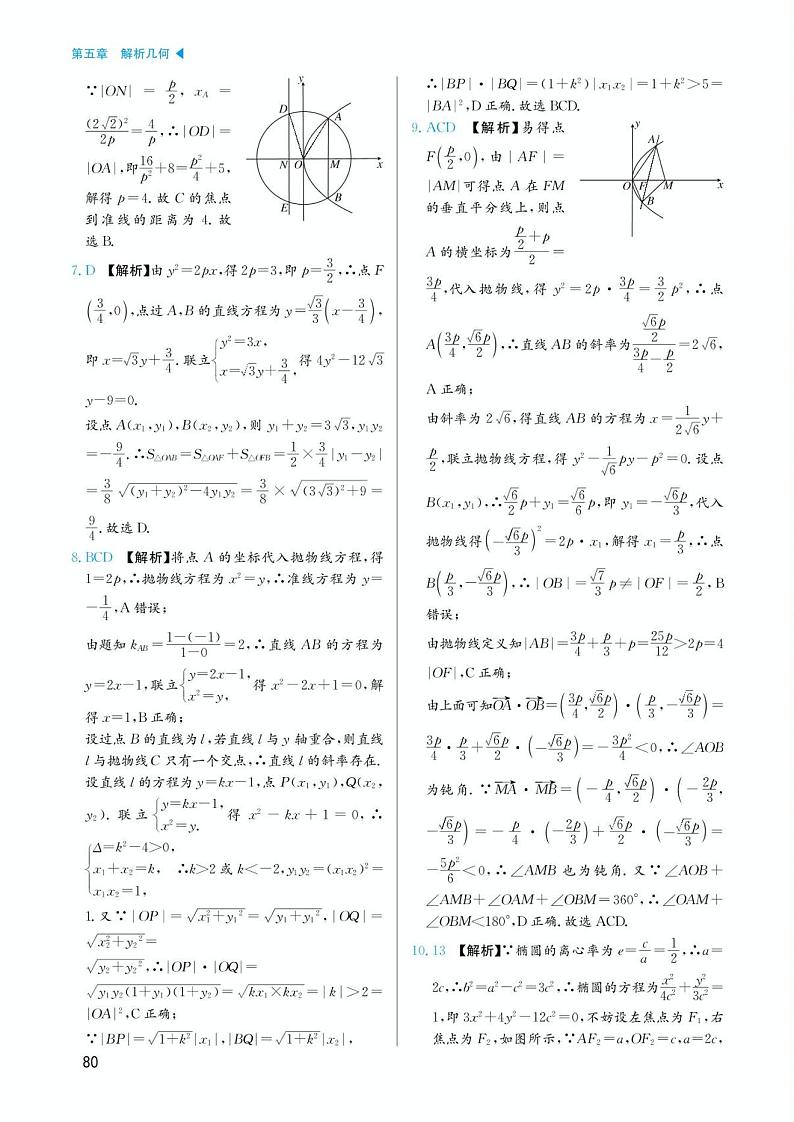 第五章 解析几何
∵|ON| = p/2, x_A =
(2√2)²/2p = 4/p, ∴|OD|=
|OA|,即16/p²+8=p²/4+5,
解得 p=4. 故 C 的焦点
到准线的距离为 4. 故
选 B.
y
D
A
N
O
M
x
E
B
7. D 【解析】由 y²=2px,得 2p=3,即 p=3/2,∴点 F
(3/4,0),点过 A,B 的直线方程为 y=√3/3(x-3/4),
即 x=√3y+3/4. 联立{y²=3x, x=√3y+3/4, 得 4y²-12√3
y-9=0.
设点 A(x₁,y₁),B(x₂,y₂),则 y₁+y₂=3√3,y₁y₂
=-9/4. ∴S△OAB=S△OAF+S△OFB=1/2×3/4|y₁-y₂|
=3/8√((y₁+y₂)²-4y₁y₂)=3/8×√((3√3)²+9)=
9/4. 故选 D.
8. BCD 【解析】将点 A 的坐标代入抛物线方程,得
1=2p,∴抛物线方程为 x²=y,∴准线方程为 y=
-1/4,A 错误;
由题知 k_AB=(1-(-1))/(1-0)=2,∴直线 AB 的方程为
y=2x-1,联立{y=2x-1, x²=y, 得 x²-2x+1=0,解
得 x=1,B 正确;
设过点 B 的直线为 l,若直线 l 与 y 轴重合,则直线
l 与抛物线 C 只有一个交点,∴直线 l 的斜率存在.
设直线 l 的方程为 y=kx-1,点 P(x₁,y₁),Q(x₂,
y₂). 联立{y=kx-1, x²=y. 得 x²-kx+1=0, ∴
{Δ=k²-4>0, x₁+x₂=k, x₁x₂=1, ∴k>2 或 k<-2,y₁y₂=(x₁x₂)²=
1. 又∵|OP|=√(x₁²+y₁²)=√(y₁+y₁²),|OQ|=
√(x₂²+y₂²)=
√(y₂+y₂²),∴|OP|·|OQ|=
√(y₁y₂(1+y₁)(1+y₂))=√(kx₁×kx₂)=|k|>2=
|OA|²,C 正确;
∵|BP|=√(1+k²)|x₁|,|BQ|=√(1+k²)|x₂|,
80
∴|BP|·|BQ|=(1+k²)|x₁x₂|=1+k²>5=
|BA|²,D 正确. 故选 BCD.
9. ACD 【解析】易得点
F(p/2,0),由|AF|=
|AM|可得点 A 在 FM
的垂直平分线上,则点
A 的横坐标为(p/2+p)/2=
y
A
O
F
M
x
B
3p/4,代入抛物线,得 y²=2p·3p/4=3/2p²,∴点
A(3p/4,√6p/2),∴直线 AB 的斜率为(√6p/2)/(3p/4-p/2)=2√6,
A 正确;
由斜率为 2√6,得直线 AB 的方程为 x=1/(2√6)y+
p/2,联立抛物线方程,得 y²-1/√6py-p²=0. 设点
B(x₁,y₁),∴√6/2p+y₁=√6/6p,即 y₁=-√6p/3,代入
抛物线得(-√6p/3)²=2p·x₁,解得 x₁=p/3,∴点
B(p/3,-√6p/3),∴|OB|=√7/3p≠|OF|=p/2,B
错误;
由抛物线定义知|AB|=3p/4+p/3+p=25p/12>2p=4
|OF|,C 正确;
由上面可知OA→·OB→=(3p/4,√6p/2)·(p/3,-√6p/3)=
3p/4·p/3+√6p/2·(-√6p/3)=-3p²/4<0,∴∠AOB
为钝角. ∵MA→·MB→=(-p/4,√6p/2)·(-2p/3,
-√6p/3)=-p/4·(-2p/3)+√6p/2·(-√6p/3)=
-5p²/6<0,∴∠AMB 也为钝角. 又∵∠AOB+
∠AMB+∠OAM+∠OBM=360°,∴∠OAM+
∠OBM<180°,D 正确. 故选 ACD.
10. 13 【解析】∵椭圆的离心率为 e=c/a=1/2,∴a=
2c,∴b²=a²-c²=3c²,∴椭圆的方程为x²/4c²+y²/3c²=
1,即 3x²+4y²-12c²=0,不妨设左焦点为 F₁,右
焦点为 F₂,如图所示,∵AF₂=a,OF₂=c,a=2c,